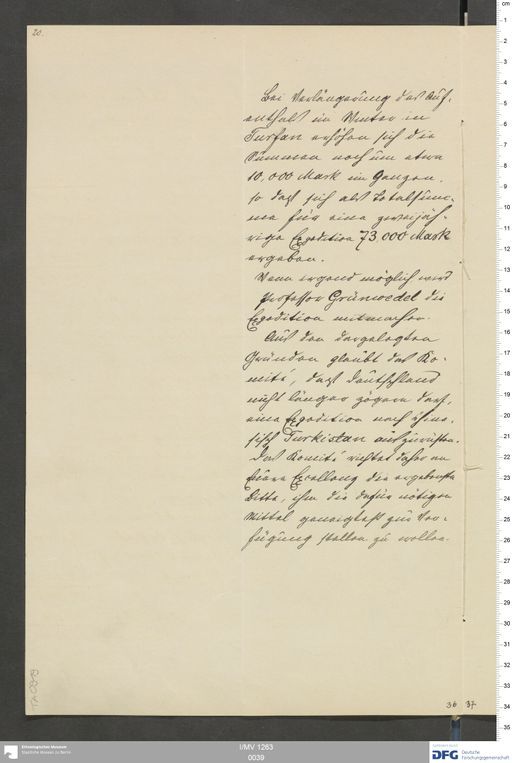 20.
Bei Verlängerung des Auf-
enthalts im Winter in
Turfan erhöhen sich die
Summen noch um etwa
10,000 Mark im Ganzen,
so daß sich als Totalsum-
me für eine zweijäh-
rige Expedition 73,000 Mark
ergeben.
Wenn irgend möglich wird
Professor Grünwedel die
Expedition mitmachen.
Aus den dargelegten
Gründen glaubt das Ko-
mité, daß Deutschland
nicht länger zögern darf,
eine Expedition nach chine-
sisch Turkistan auszurüsten.
Das Komité richtet daher an
Euere Excellenz die ergebenste
Bitte, ihm die dafür nötigen
Mittel geneigtest zur Ver-
fügung stellen zu wollen.
36 37
Ethnologisches Museum
Staatliche Museen zu Berlin
I/MV 1263
0039
DFG Deutsche
Forschungsgemeinschaft